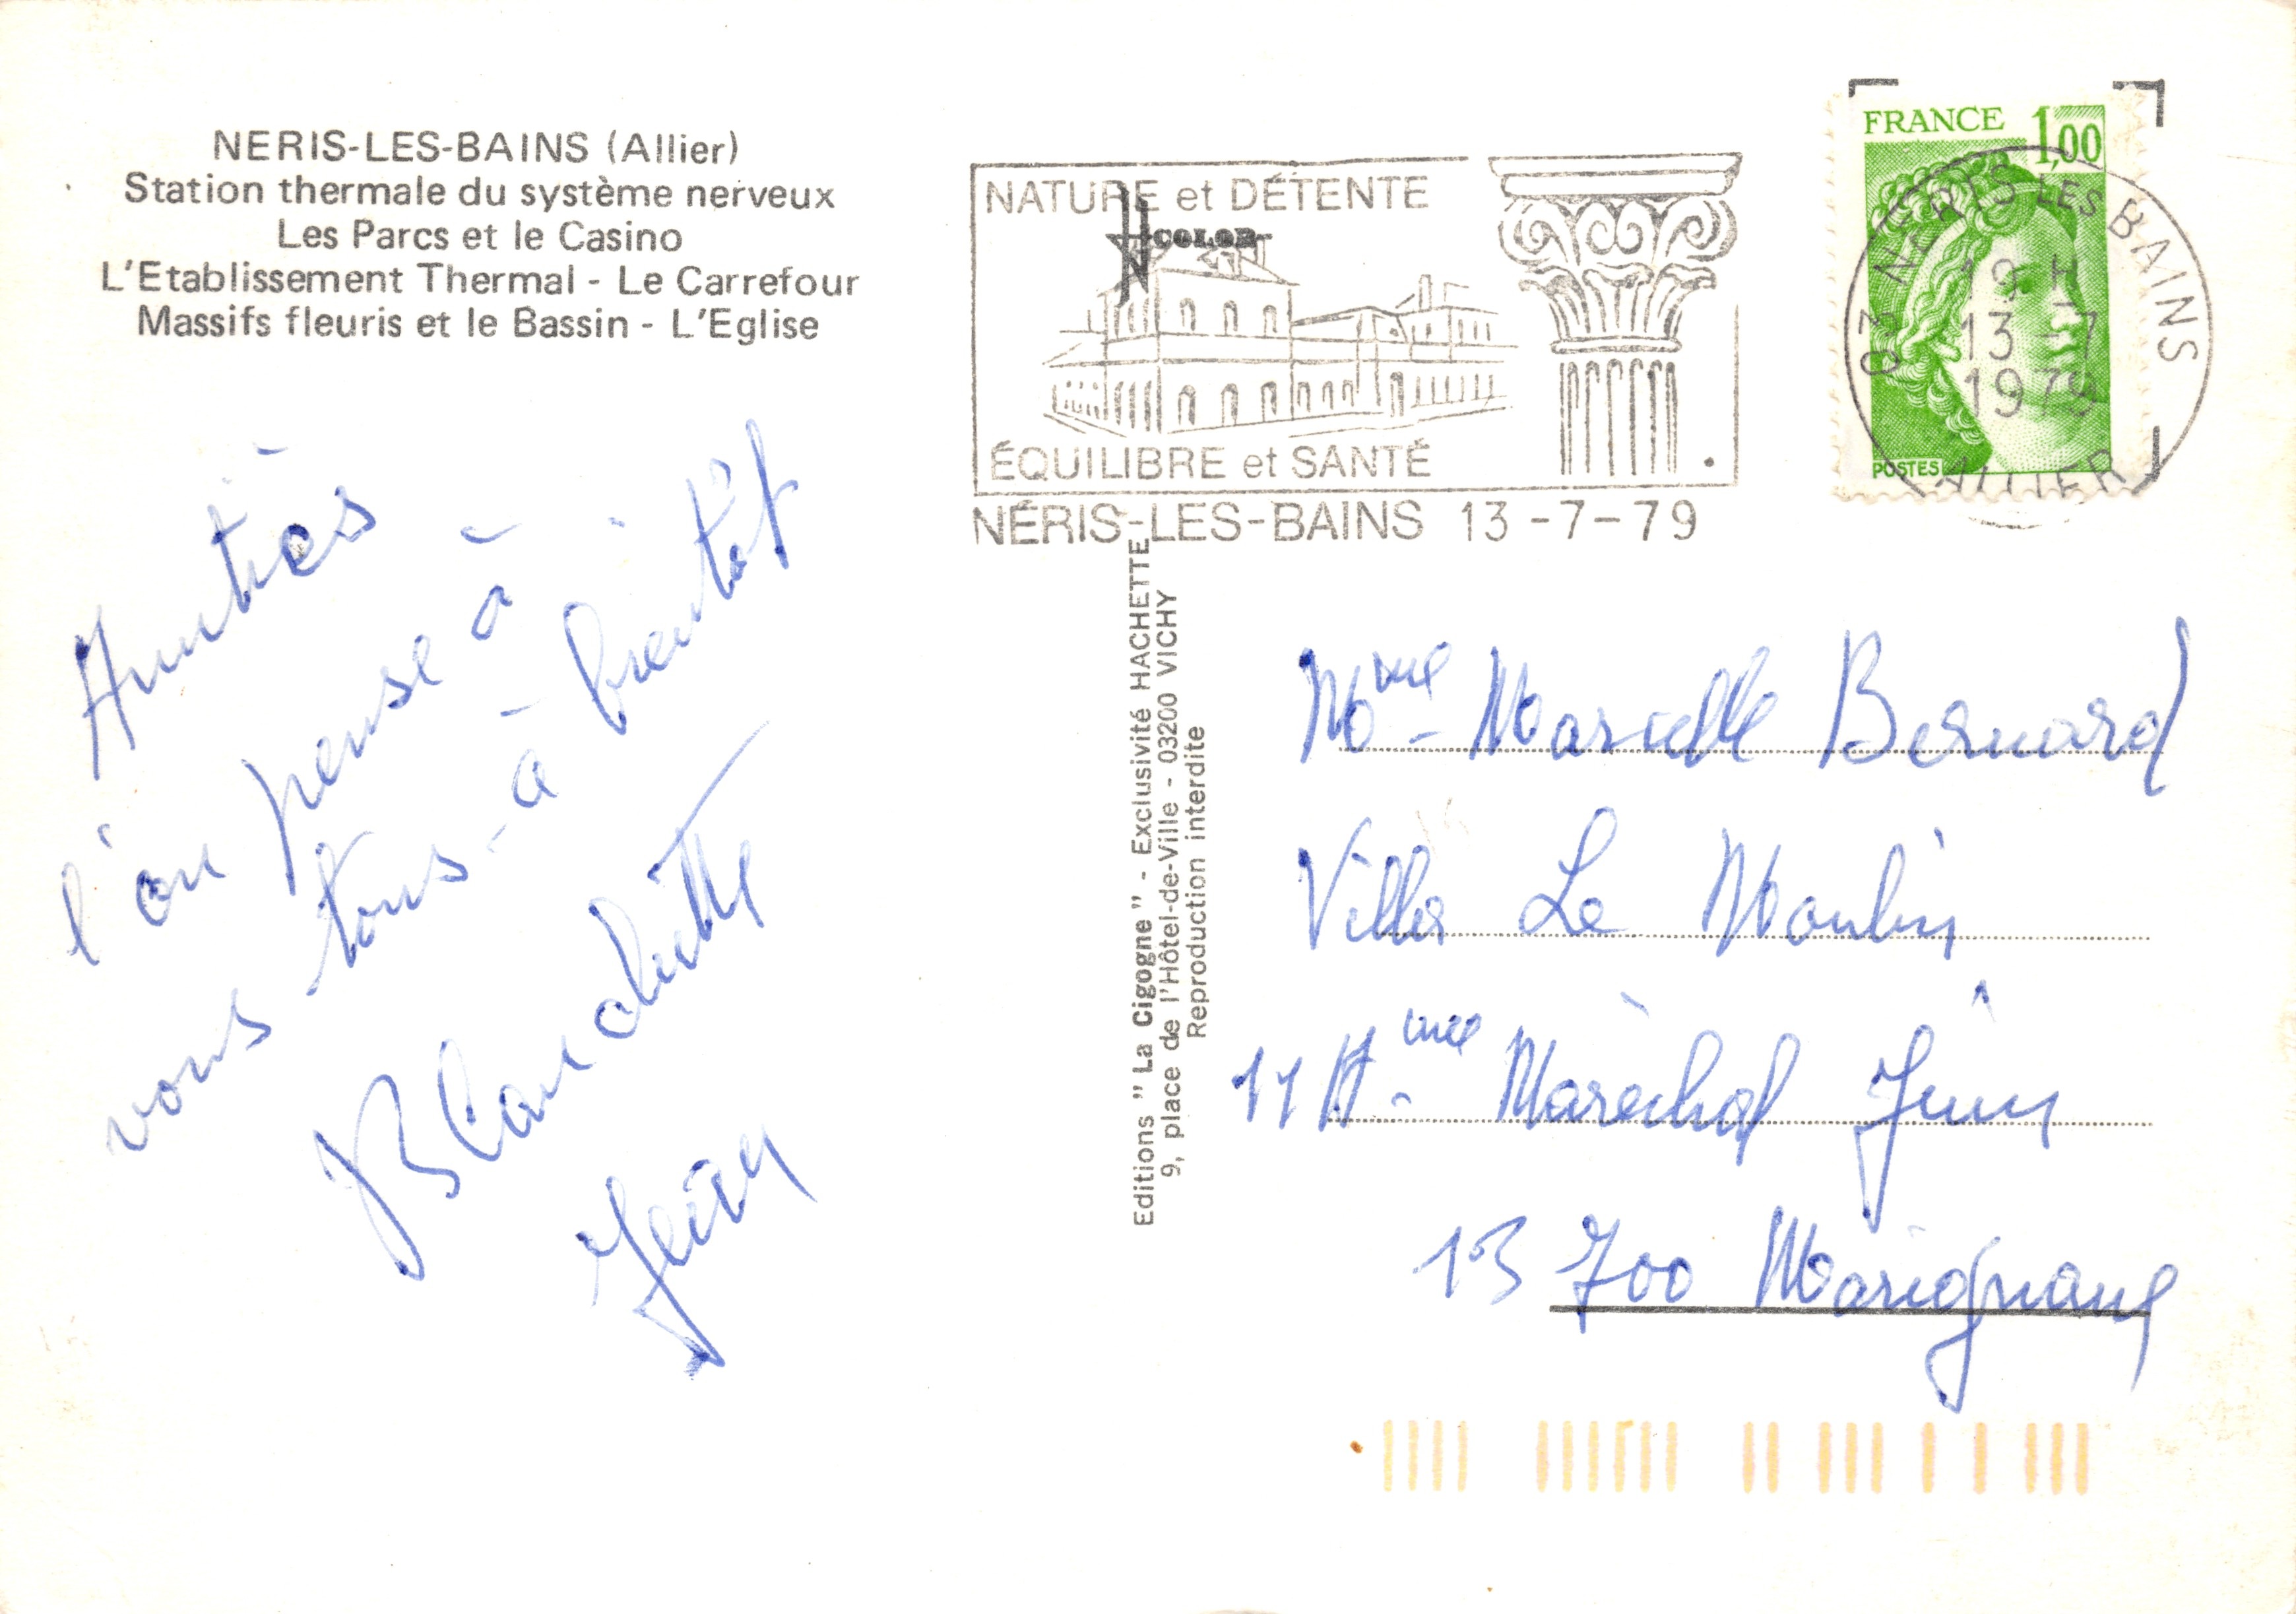 NERIS-LES-BAINS (Allier)
Station thermale du système nerveux
Les Parcs et le Casino
L'Etablissement Thermal - Le Carrefour
Massifs fleuris et le Bassin - L'Eglise
Amitiés
l'on pense à
vous tous - à bientôt
Blanchette
Jean
Editions " La Cigogne " - Exclusivité HACHETTE
9, place de l'Hôtel-de-Ville - 03200 VICHY
Reproduction interdite
NATURE et DÉTENTE
COLOR
ÉQUILIBRE et SANTÉ
NÉRIS-LES-BAINS 13-7-79
FRANCE 1,00
POSTES
03 NERIS LES BAINS
19 H
13-7
1979
ALLIER
Mme - Marcelle Bernard
Villa Le Moulin
Maréchal Juin
13 700 Marignane